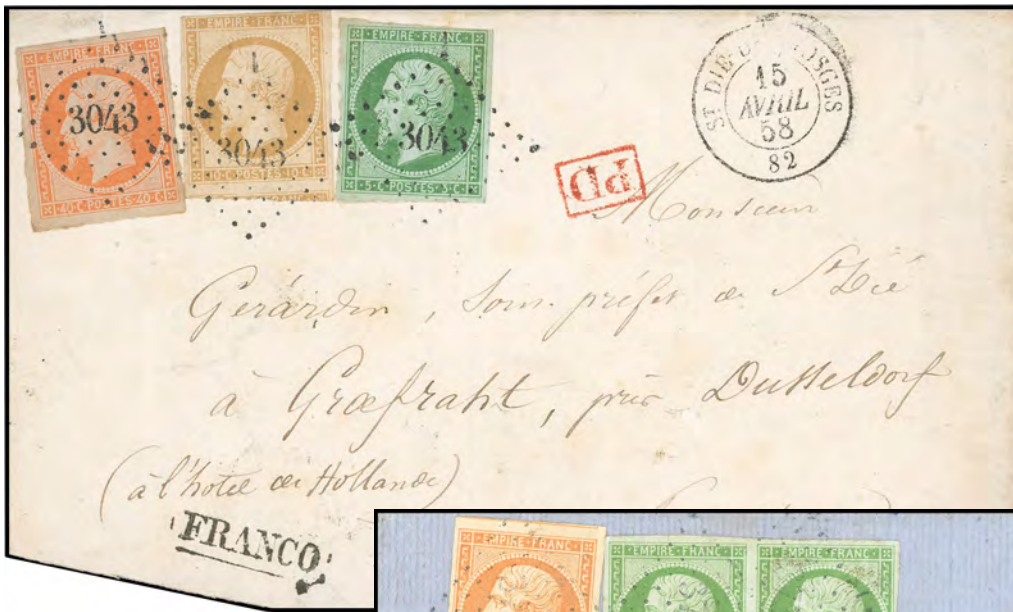 EMPIRE FRANC
3043
40·C·POSTES·40·C
EMPIRE FRANC
3043
10·C·POSTES·10·C
EMPIRE FRANC
3043
5·C·POSTES·5·C
ST DIE VOSGES
15
AVRIL
58
82
PD
Monsieur
Gerardin, Sous-préfet de St Dié
à Græfraht, près Dusseldorf
(à l'hotel de Hollande)
FRANCO
EMPIRE FRANC
EMPIRE FRANC
EMPIRE FRANC